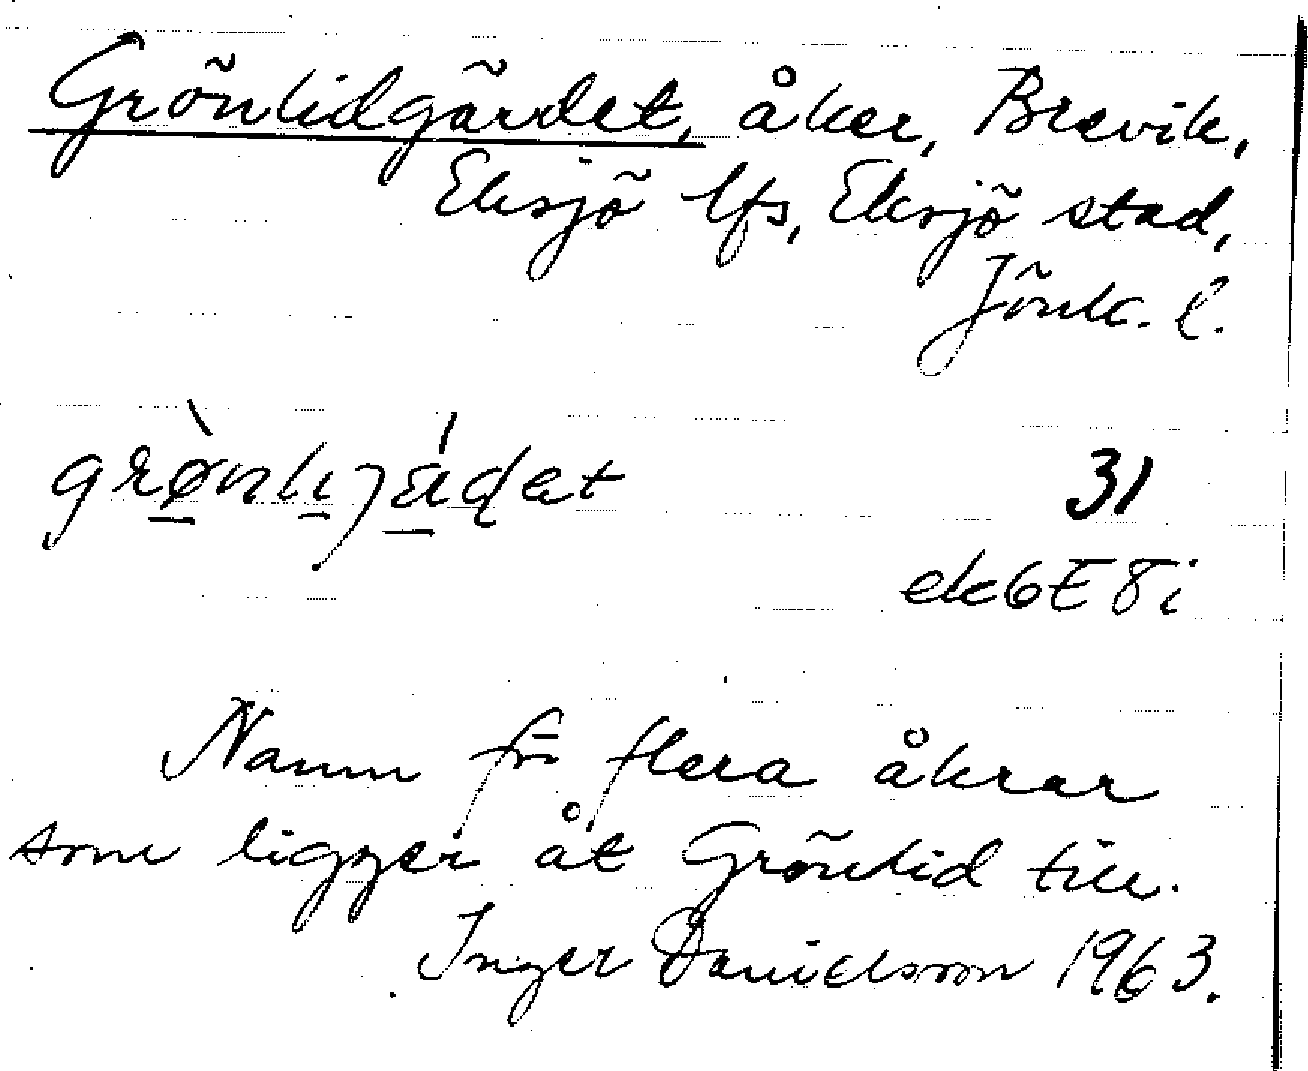 Gröntidgärdet, åker, Brevik,
Eksjö lfs, Eksjö stad,
Jönk. l.
31
ek6E8i
Namn för flera åkrar
som ligger åt Gröntid till.
Inger Danielsson 1963.